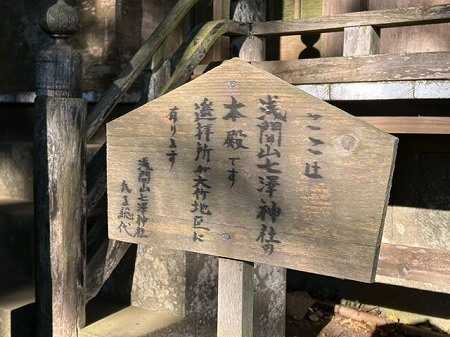 ここは
浅間山七澤神社の
本殿です
遙拝所が大竹地区に
有ります
浅間山七澤神社
氏子総代